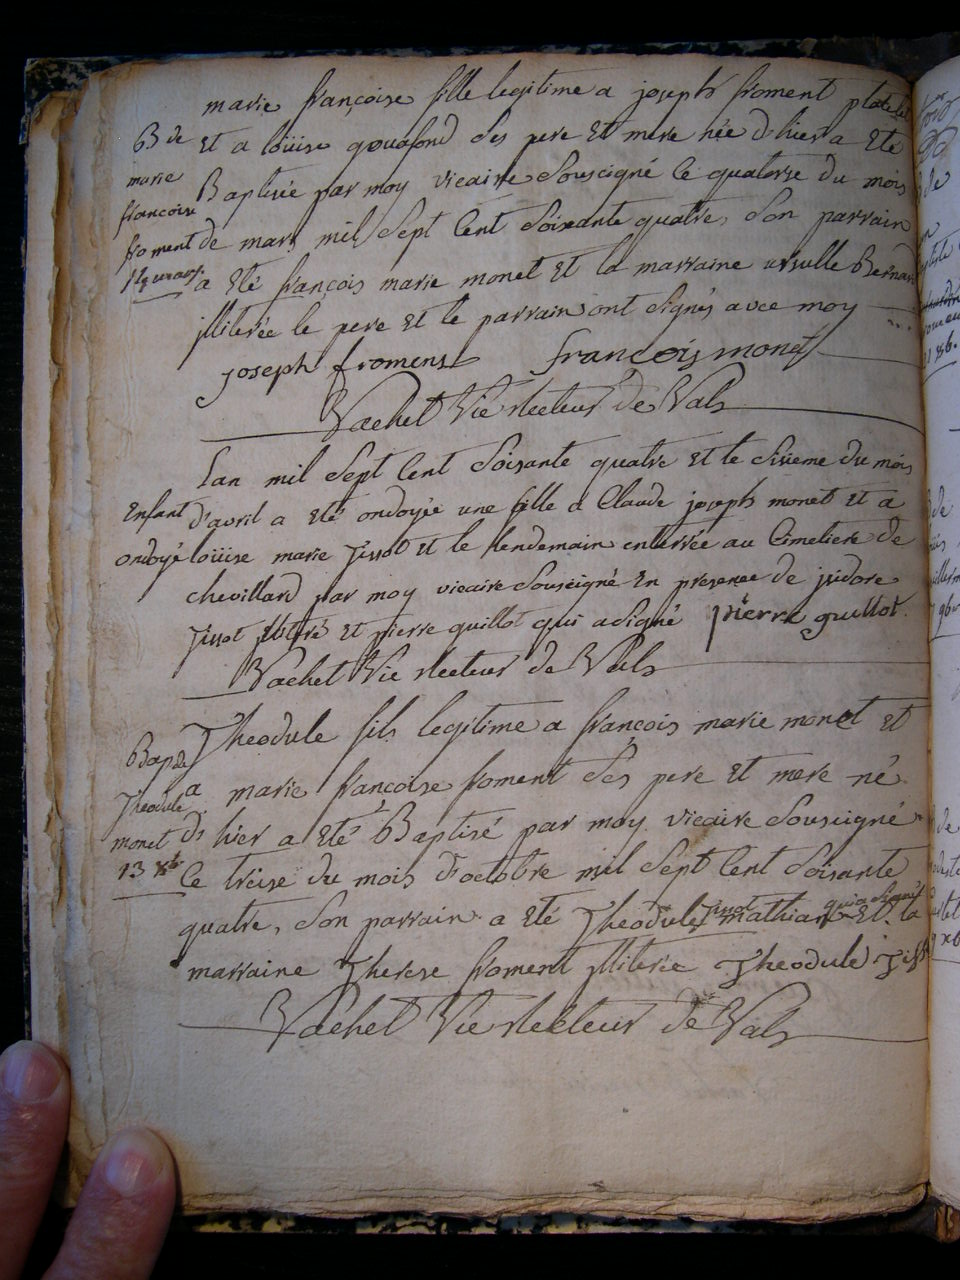 marie françoise fille legitime a joseph froment
B de
marie
francoise
froment
14 mars
et a loüise gouafond ses pere et mere née d'hier a eté
Baptisée par moy vicaire souscigné le quatorse du mois
de mars mil sept cent soixante quatre, son parrain
a eté françois marie monet et la marraine ursulle Bernard
illiterée le pere et le parrain ont signés avec moy
joseph froment françois monet
Vachet Vic recteur de Vals
Lan mil sept cent soixante quatre et le sixieme du mois
Enfant
ondoyé
d'avril a eté ondoyée une fille a Claude joseph monet et a
loüise marie jissot et le lendemain enterrée au Cimetiere de
chevillard par moy vicaire souscigné en presence de jsidore
jissot et pierre guillot qui a signé pierre guillot
Vachet Vic recteur de Vals
Bap de
Theodule
monet
13 8b
Theodule fils legitime a françois marie monet et
a marie françoise froment ses pere et mere né
d'hier a eté Baptisé par moy vicaire souscigné
le treise du mois d'octobre mil sept cent soixante
quatre, son parrain a eté Theodule mathian qui a signé et la
marraine Therese froment illiterée Theodule
Vachet Vic recteur de Vals